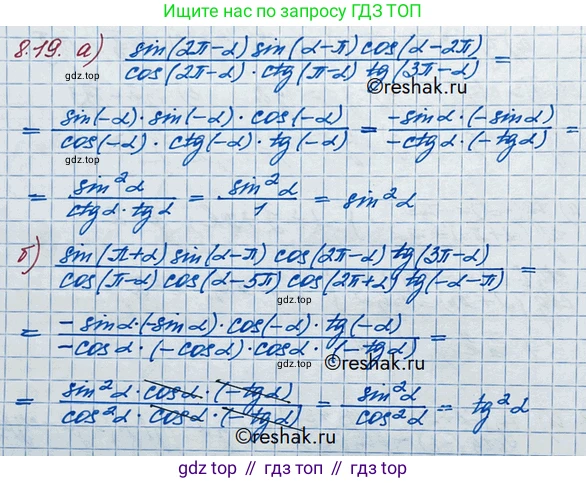 Ищите нас по запросу ГДЗ ТОП
8.19. а) sin(2π-α) sin(α-π) cos(α-2π) / cos(2π-α) · ctg(π-α) tg(3π-α) =
gdz.top
©reshak.ru
gdz.top
= sin(-α)·sin(-α)·cos(-α) / cos(-α) · ctg(-α) · tg(-α) = -sinα·(-sinα) / -ctgα·(-tgα) =
= sin²α / ctgα·tgα = sin²α / 1 = sin²α
gdz.top
б) sin(π+α) sin(α-π) cos(2π-α) tg(3π-α) / cos(π-α) cos(α-5π) cos(2π+α) tg(-α-π) =
gdz.top
= -sinα·(-sinα)·cos(-α)·tg(-α) / -cosα·(-cosα)·cosα·(-tgα) =
gdz.top
©reshak.ru
= sin²α·cosα·(-tgα) / cos²α·cosα·(-tgα) = sin²α / cos²α = tg²α
gdz.top
©reshak.ru
gdz.top // гдз.топ // gdz.top